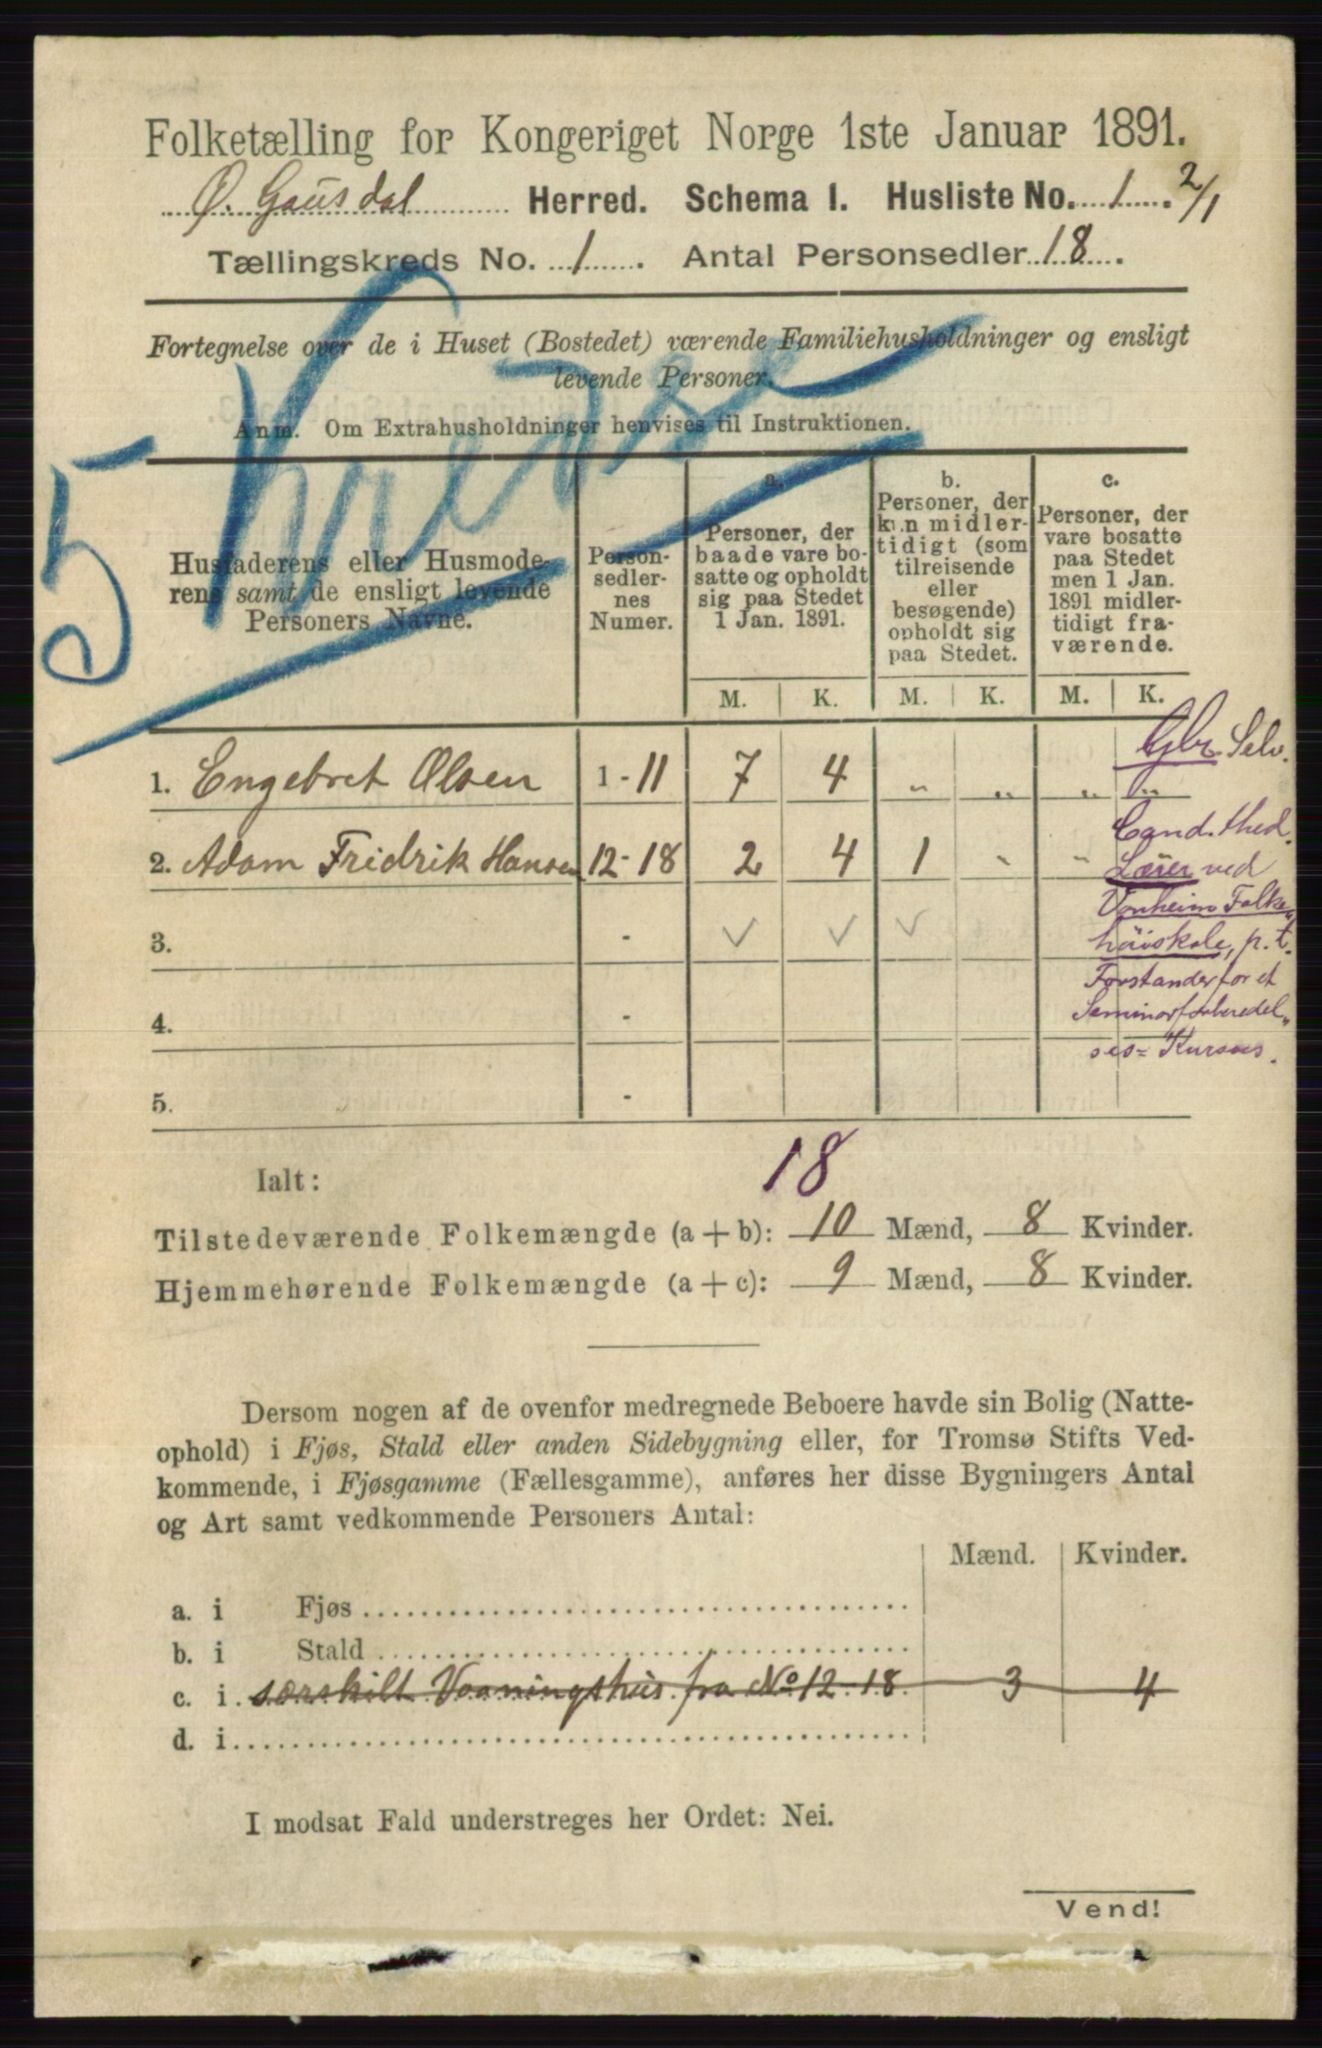 Folketælling for Kongeriget Norge 1ste Januar 1891.
Ø. Gausdal Herred. Schema 1. Husliste No. 1. 2/1
Tællingskreds No. 1. Antal Personsedler 18.
Fortegnelse over de i Huset (Bostedet) værende Familiehusholdninger og ensligt
levende Personer.
Anm. Om Extrahusholdninger henvises til Instruktionen.
5 Kreds
Husfaderens eller Husmode-
rens samt de ensligt levende
Personers Navne.
Person-
sedler-
nes
Numer.
a.
Personer, der
baade vare bo-
satte og opholdt
sig paa Stedet
1 Jan. 1891.
b.
Personer, der
kun midler-
tidigt (som
tilreisende
eller
besøgende)
opholdt sig
paa Stedet.
c.
Personer, der
vare bosatte
paa Stedet
men 1 Jan.
1891 midler-
tidigt fra-
værende.
M. K. M. K. M. K.
1. Engebret Olsen 1-11 7 4 „ „ „ „
Gbr. Selv.
2. Adam Fridrik Hansen 12-18 2 4 1 - -
Cand. theol.
Lærer ved
Vonheim Folke„
høiskole, p. t.
Forstander for et
Seminarforberedel„
ses= Kursus.
3. -
4. -
5. -
18
Ialt:
Tilstedeværende Folkemængde (a + b): 10 Mænd, 8 Kvinder.
Hjemmehørende Folkemængde (a + c): 9 Mænd, 8 Kvinder.
Dersom nogen af de ovenfor medregnede Beboere havde sin Bolig (Natte-
ophold) i Fjøs, Stald eller anden Sidebygning eller, for Tromsø Stifts Ved-
kommende, i Fjøsgamme (Fællesgamme), anføres her disse Bygningers Antal
og Art samt vedkommende Personers Antal:
Mænd. Kvinder.
a. i Fjøs
b. i Stald
c. i særskilt Vaaningshus fra No 12-18. 3 4
d. i
I modsat Fald understreges her Ordet: Nei.
Vend!